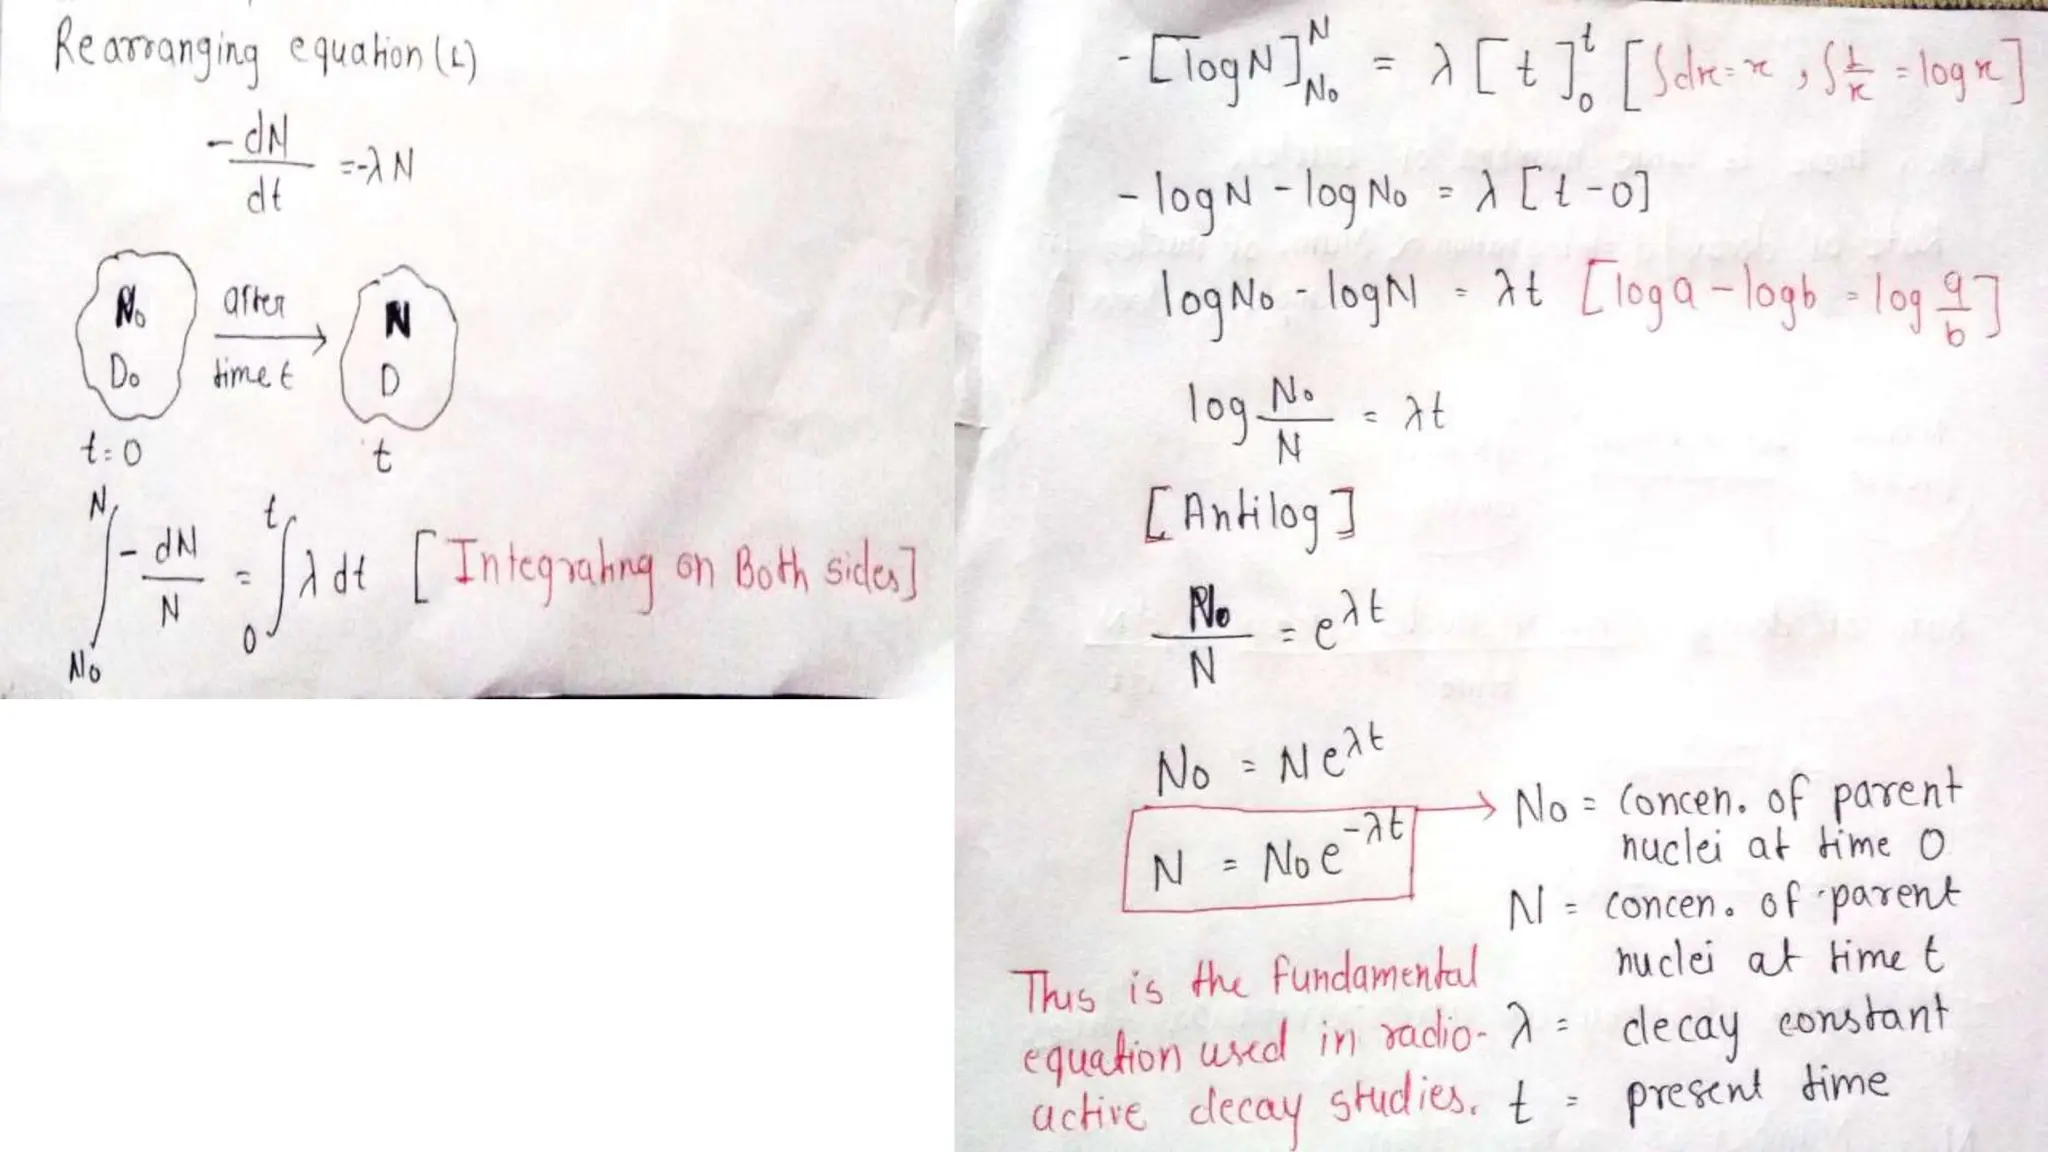 Rearranging equation (1)
-dN/dt =-λN
N₀ after N
D₀ time t D
t=0 t
∫_{N₀}^{N} -dN/N = ∫_{0}^{t} λdt [Integrating on Both sides]
-[logN]_{N₀}^{N} = λ[t]_{0}^{t} [∫dx=x, ∫1/x = logx]
-logN - logN₀ = λ[t-0]
logN₀ - logN = λt [loga - logb = log a/b]
log N₀/N = λt
[Antilog]
N₀/N = e^{λt}
N₀ = Ne^{λt}
N = N₀e^{-λt}
N₀ = Concen. of parent
nuclei at time 0
N = concen. of parent
nuclei at time t
λ = decay constant
t = present time
This is the fundamental
equation used in radio-
active decay studies.